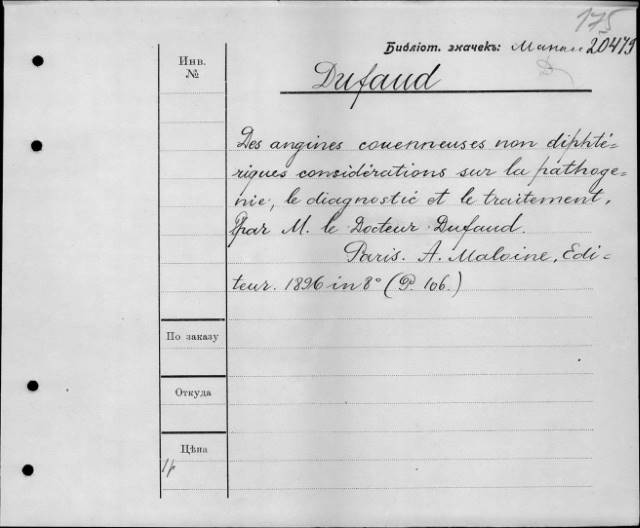 175
Библіот. значекъ: 20479
Инв.
№
Dufaud
Des angines couenneuses non diphté=
riques considérations sur la pathoge=
nie, le diagnostic et le traitement,
par M. le Docteur Dufaud.
Paris. A. Maloine, Edi=
teur. 1896 in 8° (P. 106.)
По заказу
Откуда
Цѣна
1р